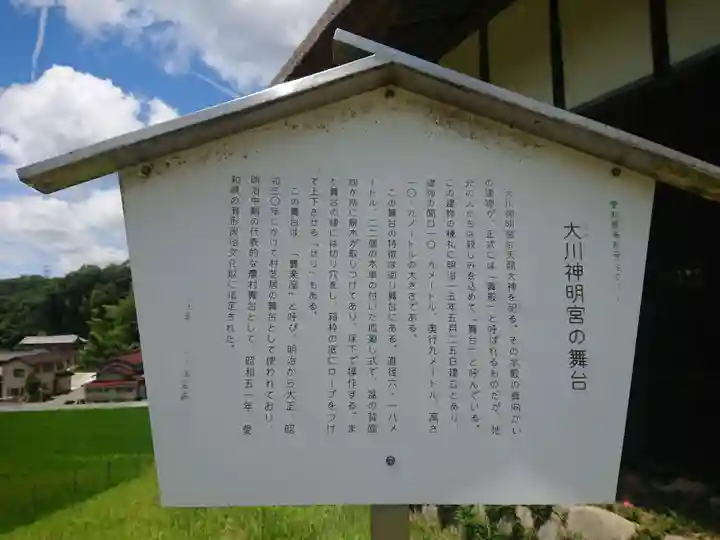 大川神明宮の舞台
大川神明宮は天照大神を祀る。その本殿の真向かい
の建物が、正式には「舞殿」と呼ばれるものだが、地
元の人たちは親しみを込めて「舞台」と呼んでいる。
この建物の棟札に明治一五年五月二五日建立とあり、
建物の間口一〇・九メートル、奥行九メートル、高さ
一〇・九メートルの大きさである。
この舞台の特徴は廻り舞台にある。直径六・一八メ
ートル、二二個の木車の付いた皿廻し式で、盆の背面
四か所に腕木が取りつけてあり、床下で操作する。ま
た舞台の縁には切り穴をし、箱枠の底にロープをつけ
て上下させる「せり」もある。
この舞台は、「豊楽座」と呼び、明治から大正、昭
和三〇年にかけて村芝居の舞台として使われており
明治中期の代表的な農村舞台として、昭和五一年、愛
知県の有形民俗文化財に指定された。